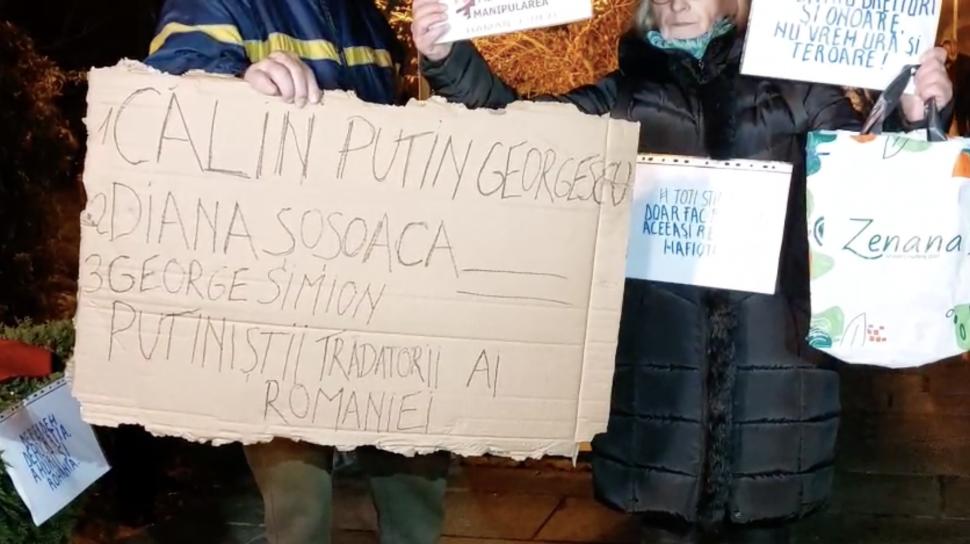 MANIPULAREA
DREPTURI
ȘI ONOARE,
NU VREM URĂ ȘI
TEROARE!
1 CĂLIN PUTIN GEORGESCU
2 DIANA ȘOȘOACA
3 GEORGE SIMION
PUTINIȘTII TRĂDATORII AI
ROMANIEI
TOTI
DOAR FAC
ACEEASI
MAFIOT
Zenana
ROMÂNIA